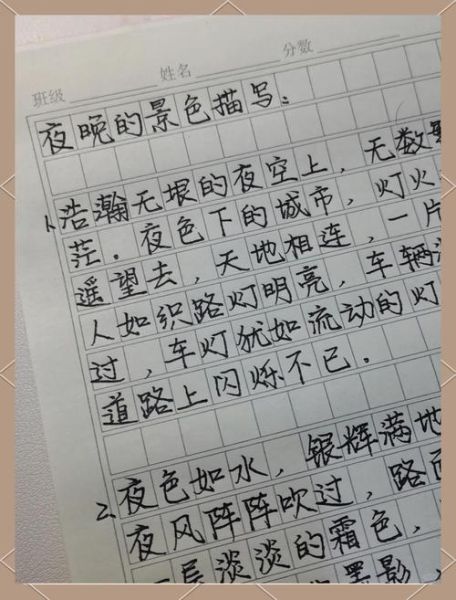 班级 姓名 分数
夜晚的景色描写：
1、浩瀚无垠的夜空上，无数
茫．夜色下的城市，灯火
遥望去，天地相连，一片
人如织路灯明亮，车辆
过，车灯犹如流动的灯
道路上闪烁不已．
2、夜色如水，银辉满地
夜风阵阵吹过，路
层淡淡的霜色，
黑影